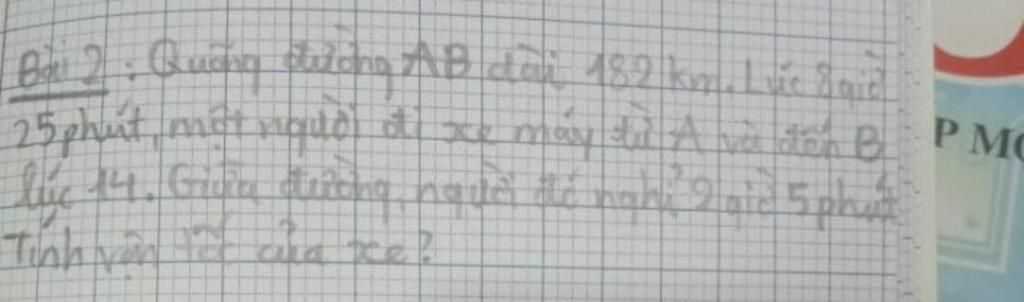 Bài 2: Quãng đường AB dài 182 km. Lúc 8 giờ
25 phút, một người đi xe máy từ A và đến B
lúc 14. Giữa đường, người đó nghỉ 2 giờ 5 phút
Tính vận tốc của xe?
P MO